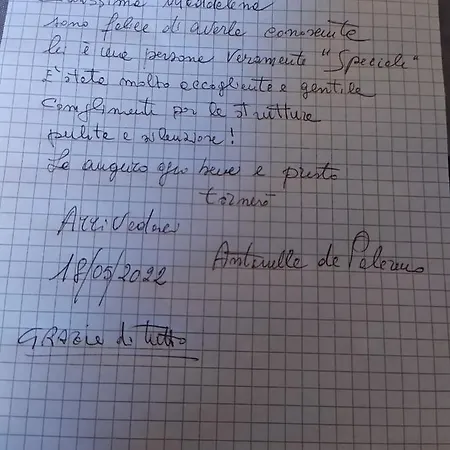 Carissima Maddalena
sono felice di averla conosciuta
lei è una persona veramente "Speciale"
E' stata molto accogliente e gentile
Complimenti per la struttura
pulita e silenziosa!
Le auguro ogni bene e presto
tornerò
Arrivederci
18/05/2022
Antonella da Palermo
GRAZIE di tutto